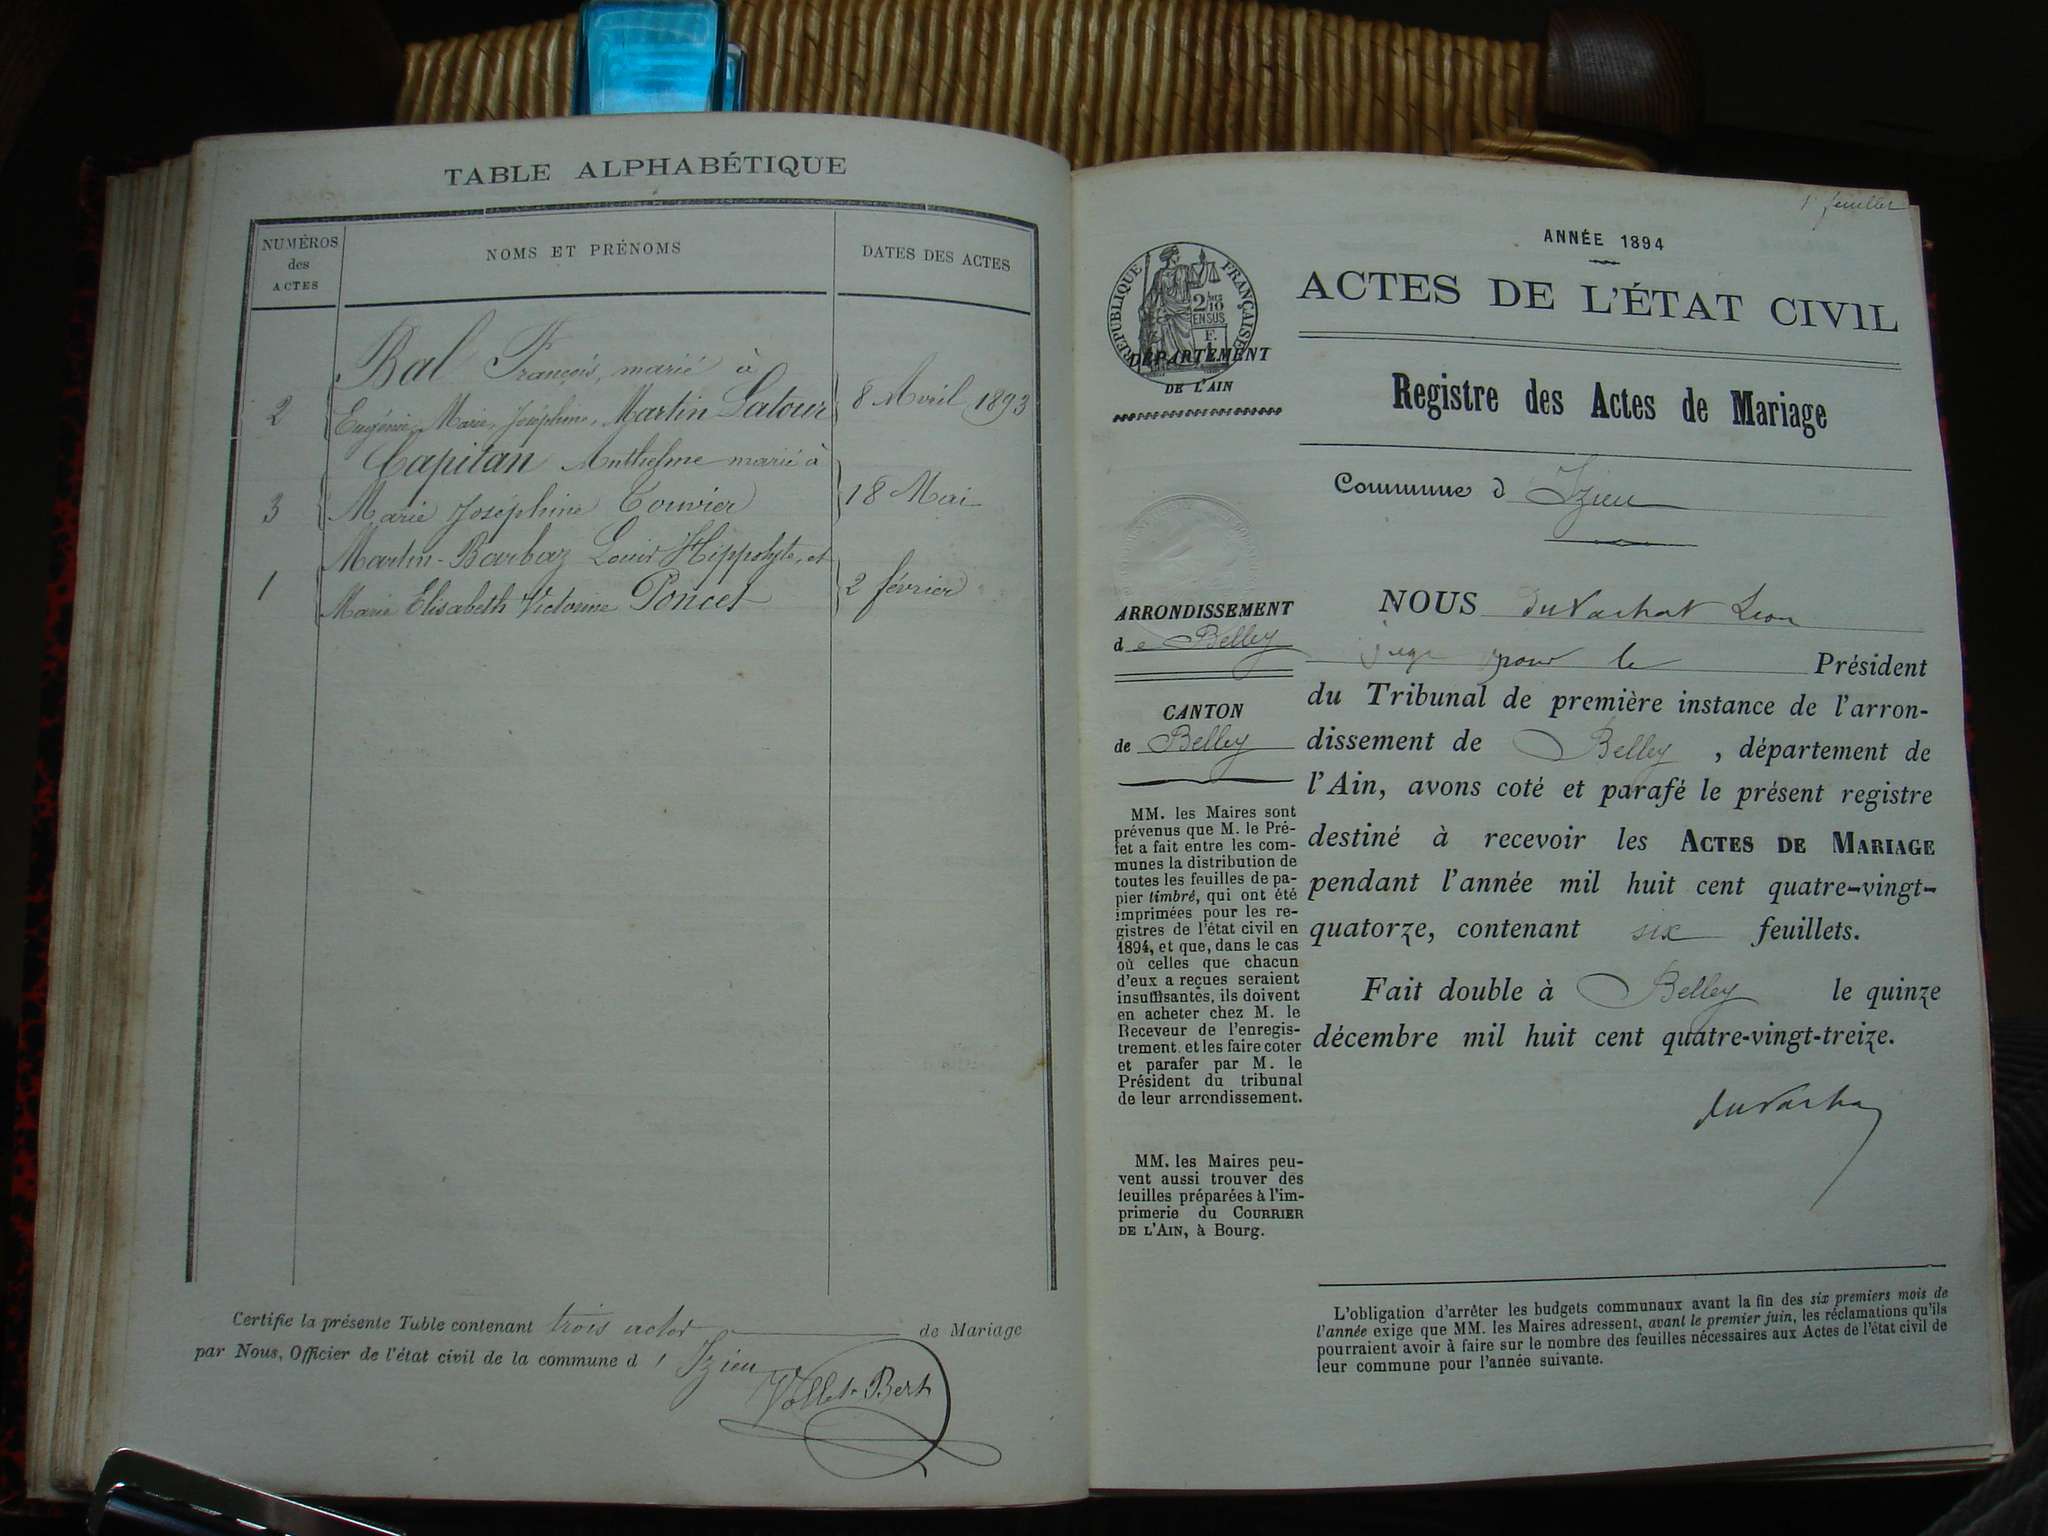 TABLE ALPHABÉTIQUE
NUMÉROS
des
ACTES
NOMS ET PRÉNOMS
DATES DES ACTES
Bal François, marié à
2 Eugénie, Marie, Joséphine, Martin Latour 8 Avril 1893
Capitan Anthelme marié à
3 Marie Joséphine Touvier 18 Mai
Martin-Barbaz Louis Hippolyte, et
1 Marie Elisabeth Victorine Poncet 2 février
Certifie la présente Table contenant trois actes de Mariage
par Nous, Officier de l'état civil de la commune d' Izieu
1er feuillet
ANNÉE 1894
ACTES DE L'ÉTAT CIVIL
Registre des Actes de Mariage
Commune d Izieu
RÉPUBLIQUE FRANÇAISE
2/10
EN SUS
DÉPARTEMENT
DE L'AIN
ARRONDISSEMENT
de Belley
CANTON
de Belley
MM. les Maires sont
prévenus que M. le Pré-
fet a fait entre les com-
munes la distribution de
toutes les feuilles de pa-
pier timbré, qui ont été
imprimées pour les re-
gistres de l'état civil en
1894, et que, dans le cas
où celles que chacun
d'eux a reçues seraient
insuffisantes, ils doivent
en acheter chez M. le
Receveur de l'enregis-
trement et les faire coter
et parafer par M. le
Président du tribunal
de leur arrondissement.
MM. les Maires peu-
vent aussi trouver des
feuilles préparées à l'im-
primerie du COURRIER
DE L'AIN, à Bourg.
NOUS Duvachat Leon
juge pour le Président
du Tribunal de première instance de l'arron-
dissement de Belley, département de
l'Ain, avons coté et parafé le présent registre
destiné à recevoir les ACTES DE MARIAGE
pendant l'année mil huit cent quatre-vingt-
quatorze, contenant six feuillets.
Fait double à Belley le quinze
décembre mil huit cent quatre-vingt-treize.
L'obligation d'arrêter les budgets communaux avant la fin des six premiers mois de
l'année exige que MM. les Maires adressent, avant le premier juin, les réclamations qu'ils
pourraient avoir à faire sur le nombre des feuilles nécessaires aux Actes de l'état civil de
leur commune pour l'année suivante.